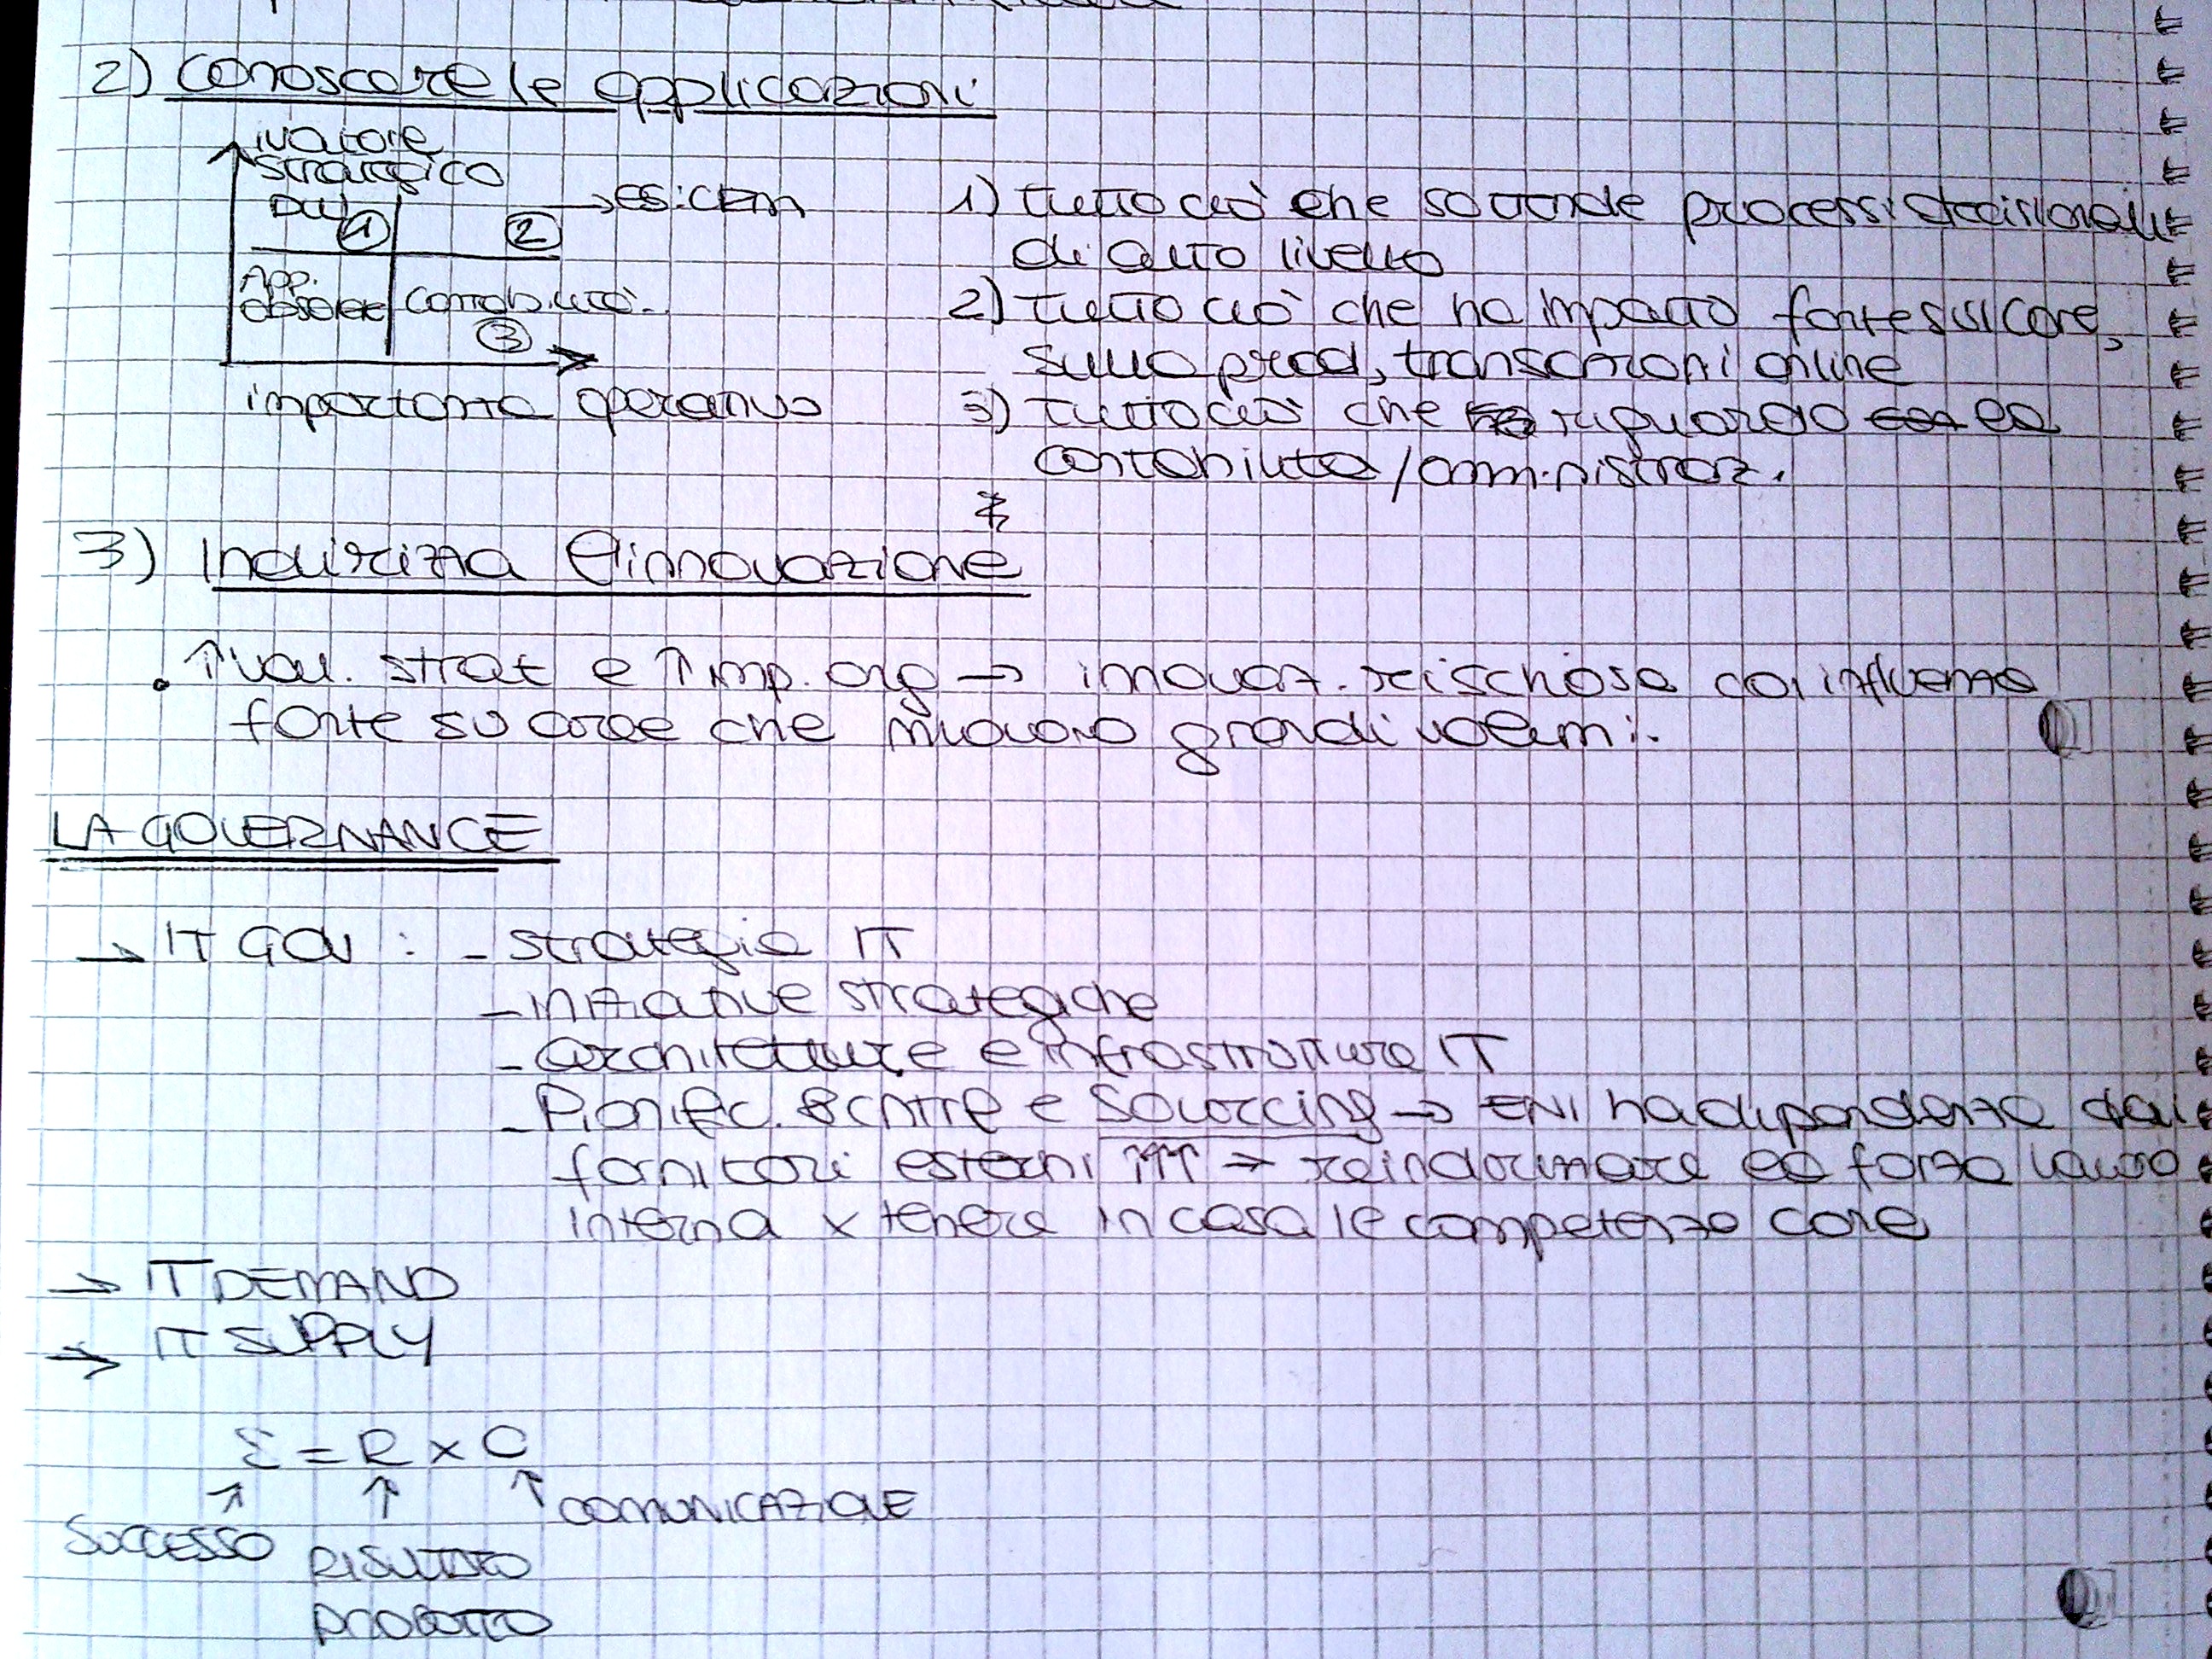 2) Conoscere le applicazioni
valore
strategico
DW ① ② → es: CRM
App. obsolete contabilità ③
importanza operativa
1) tutto ciò che sottende processi decisionali
di alto livello
2) tutto ciò che ha impatto forte sul core,
sulla prod, transazioni online
3) tutto ciò che riguarda la
contabilità/amministraz.
3) Indirizza l'innovazione
. ↑ val. strat e ↑ imp. org → innovaz. rischiosa con influenza
forte su aree che muovono grandi volumi.
LA GOVERNANCE
→ IT GOV : - strategia IT
- iniziative strategiche
- architetture e infrastruttura IT
- Pianific. e Sourcing → ENI ha dipendenza dai
fornitori esterni ↑↑↑ → reindirizzare la forza lavoro
interna x tenere in casa le competenze core
→ IT DEMAND
→ IT SUPPLY
S = R x C
↗ ↑ ↑ COMUNICAZIONE
SUCCESSO RISULTATO
PRODOTTO